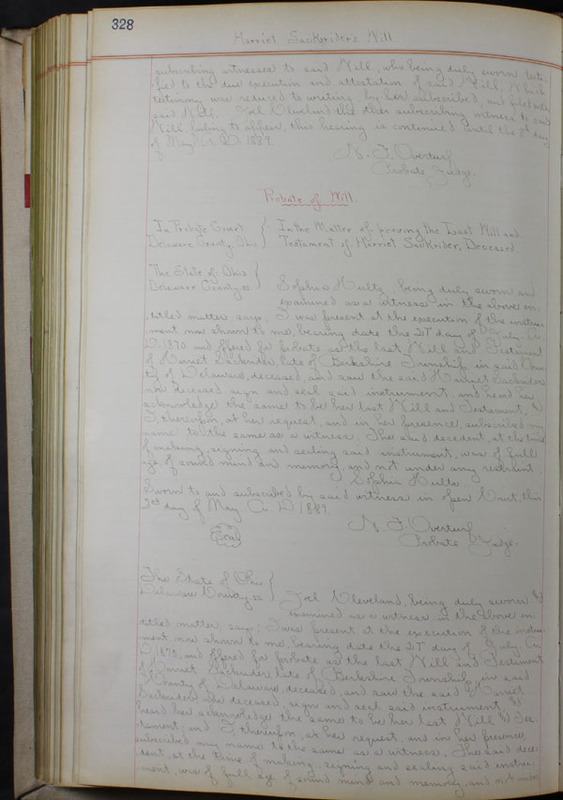 328
Harriet Sackrider's Will
subscribing witnesses to said Will, who being duly sworn testi-
fied to the due execution and attestation of said Will, Which
testimony was reduced to writing, by her subscribed, and filed with
said Will. Joel Cleveland the other subscribing witness to said
Will failing to appear, this hearing is continued until the 8th day
of May A. D. 1889.
N. F. Overturf
Probate Judge.
Probate of Will.
In Probate Court { In the Matter of proving the Last Will and
Delaware County, Ohio { Testament of Harriet Sackrider, Deceased
The State of Ohio {
Delaware County ss { Sophia Hults, being duly sworn and
examined as a witness in the above en-
titled matter, says, I was present at the execution of the instru-
ment now shown to me, bearing date the 27 day of July A.
D. 1870 and offered for probate as the last Will and Testament
of Harriet Sackrider, late of Berkshire Township in said Coun-
ty of Delaware, deceased, and saw the said Harriet Sackrider
now deceased sign and seal said instrument, and heard her
acknowledge the same to be her last Will and Testament, &
I, thereupon, at her request, and in her presence, subscribed my
name to the same as a witness. The said decedent at the time
of making, signing and sealing said instrument, was of full
age, of sound mind and memory, and not under any restraint
Sophia Hults
Sworn to and subscribed by said witness in open Court, this
3rd day of May A. D. 1889.
Seal
N. F. Overturf
Probate Judge.
The State of Ohio {
Delaware County ss { Joel Cleveland, being duly sworn &
examined as a witness in the above en-
titled matter, says; I was present at the execution of the instru-
ment now shown to me, bearing date the 27 day of July A.
D. 1870, and offered for probate as the last Will and Testament
of Harriet Sackrider late of Berkshire Township, in said
County of Delaware, deceased, and saw the said Harriet
Sackrider, now deceased, sign and seal said instrument, &
heard her acknowledge the same to be her last Will & Tes-
tament; and I, thereupon, at her request, and in her presence,
subscribed my name to the same as a witness. The said dece-
dent, at the time of making, signing and sealing said instru-
ment, was of full age, of sound mind and memory, and not under